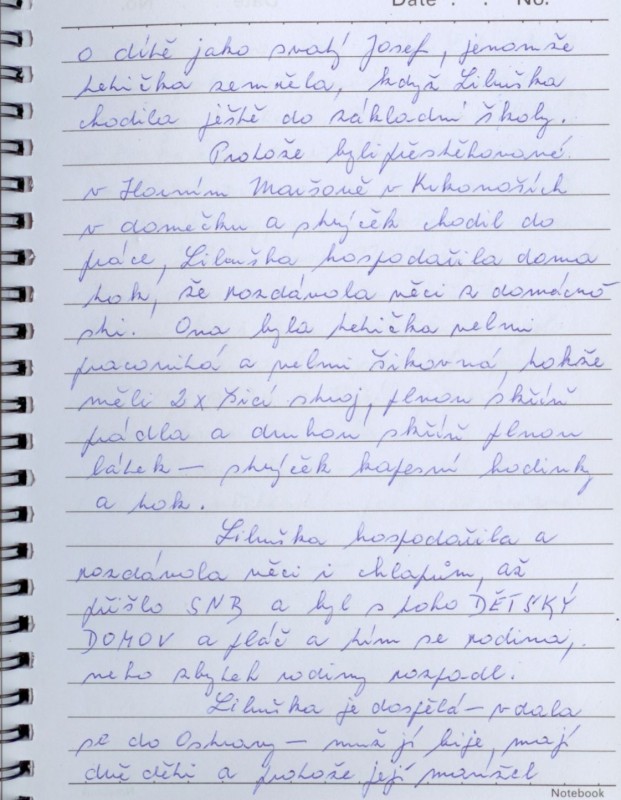 Date . . No.
o dítě jako svatý Josef, jenomže
tetička zemřela, když Libuška
chodila ještě do základní školy.
Protože byli přestěhované
v Horním Maršově v Krkonoších
v domečku a strýček chodil do
práce, Libuška hospodařila doma
tak, že rozdávala věci z domácno
sti. Ona byla tetička velmi
pracovitá a velmi šikovná, takže
měli 2x šicí stroj, plnou skříň
prádla a druhou skříň plnou
látek – strýček kapesní hodinky
a tak.
Libuška hospodařila a
rozdávala věci i chlapům, až
přišlo SNB a byl s toho DĚTSKÝ
DOMOV a pláč a tím se rodina,
neho zbytek rodiny rozpadl.
Libuška je dospělá – vdala
se do Ostravy – muž jí bije, mají
dvě děti a protože její manžel
Notebook